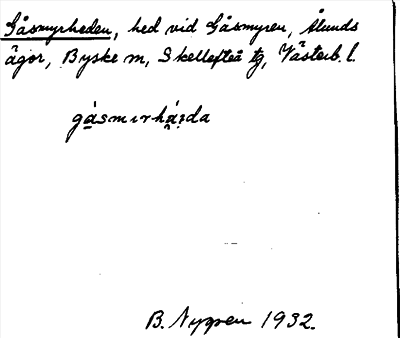 Gåsmyrheden, hed vid Gåsmyren, Ålunds
ägor, Byske sn, Skellefteå tg, Västerb. l.
gåsmırhá̤ida
B. Nygren 1932.